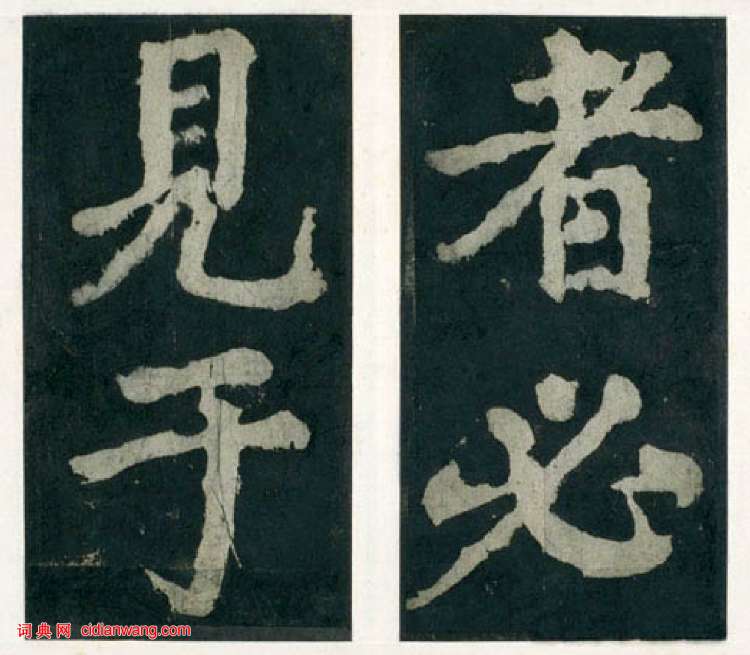 者必
见于
词典网 cidianwang.com